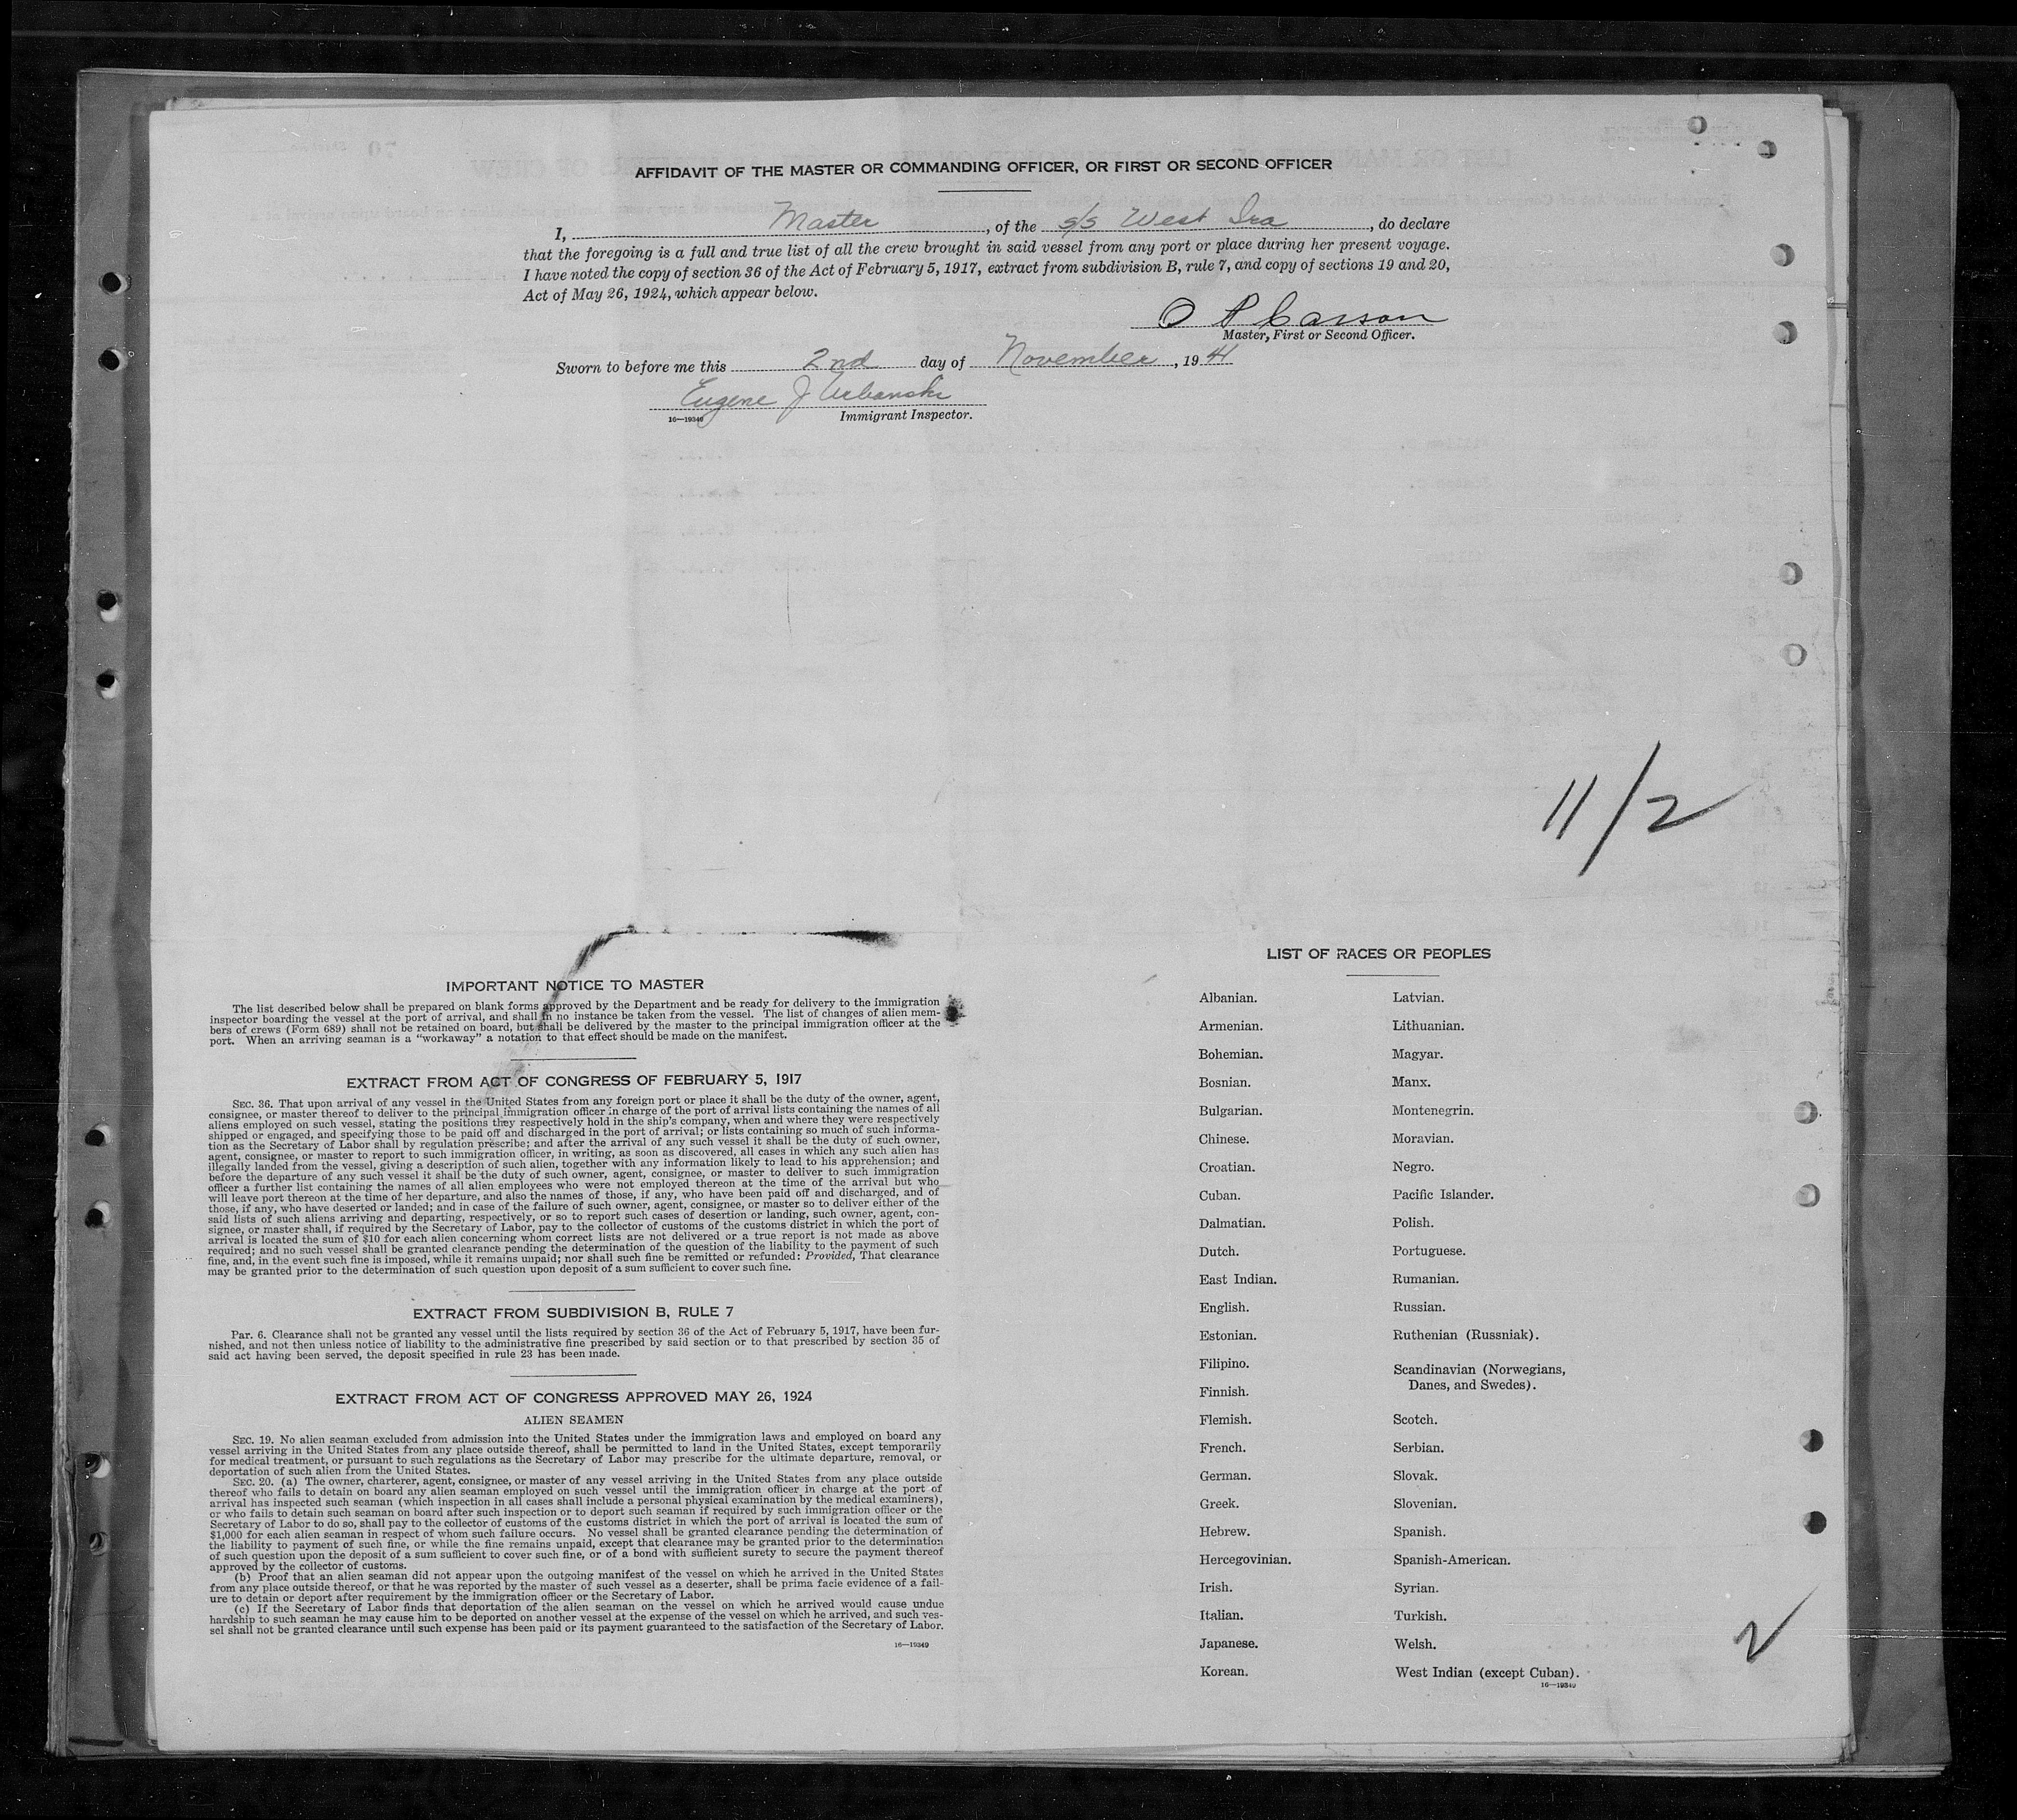 AFFIDAVIT OF THE MASTER OR COMMANDING OFFICER, OR FIRST OR SECOND OFFICER
I, Master, of the s/s West Ira, do declare
that the foregoing is a full and true list of all the crew brought in said vessel from any port or place during her present voyage.
I have noted the copy of section 36 of the Act of February 5, 1917, extract from subdivision B, rule 7, and copy of sections 19 and 20,
Act of May 26, 1924, which appear below.
O P Carson
Master, First or Second Officer.
Sworn to before me this 2nd day of November, 1941
Eugene J Urbanski
16—19349 Immigrant Inspector.
11/2
IMPORTANT NOTICE TO MASTER
The list described below shall be prepared on blank forms approved by the Department and be ready for delivery to the immigration
inspector boarding the vessel at the port of arrival, and shall in no instance be taken from the vessel. The list of changes of alien mem-
bers of crews (Form 689) shall not be retained on board, but shall be delivered by the master to the principal immigration officer at the
port. When an arriving seaman is a "workaway" a notation to that effect should be made on the manifest.
EXTRACT FROM ACT OF CONGRESS OF FEBRUARY 5, 1917
SEC. 36. That upon arrival of any vessel in the United States from any foreign port or place it shall be the duty of the owner, agent,
consignee, or master thereof to deliver to the principal immigration officer in charge of the port of arrival lists containing the names of all
aliens employed on such vessel, stating the positions they respectively hold in the ship's company, when and where they were respectively
shipped or engaged, and specifying those to be paid off and discharged in the port of arrival; or lists containing so much of such informa-
tion as the Secretary of Labor shall by regulation prescribe; and after the arrival of any such vessel it shall be the duty of such owner,
agent, consignee, or master to report to such immigration officer, in writing, as soon as discovered, all cases in which any such alien has
illegally landed from the vessel, giving a description of such alien, together with any information likely to lead to his apprehension; and
before the departure of any such vessel it shall be the duty of such owner, agent, consignee, or master to deliver to such immigration
officer a further list containing the names of all alien employees who were not employed thereon at the time of the arrival but who
will leave port thereon at the time of her departure, and also the names of those, if any, who have been paid off and discharged, and of
those, if any, who have deserted or landed; and in case of the failure of such owner, agent, consignee, or master so to deliver either of the
said lists of such aliens arriving and departing, respectively, or so to report such cases of desertion or landing, such owner, agent, con-
signee, or master shall, if required by the Secretary of Labor, pay to the collector of customs of the customs district in which the port of
arrival is located the sum of $10 for each alien concerning whom correct lists are not delivered or a true report is not made as above
required; and no such vessel shall be granted clearance pending the determination of the question of the liability to the payment of such
fine, and, in the event such fine is imposed, while it remains unpaid; nor shall such fine be remitted or refunded: Provided, That clearance
may be granted prior to the determination of such question upon deposit of a sum sufficient to cover such fine.
EXTRACT FROM SUBDIVISION B, RULE 7
Par. 6. Clearance shall not be granted any vessel until the lists required by section 36 of the Act of February 5, 1917, have been fur-
nished, and not then unless notice of liability to the administrative fine prescribed by said section or to that prescribed by section 35 of
said act having been served, the deposit specified in rule 23 has been made.
EXTRACT FROM ACT OF CONGRESS APPROVED MAY 26, 1924
ALIEN SEAMEN
SEC. 19. No alien seaman excluded from admission into the United States under the immigration laws and employed on board any
vessel arriving in the United States from any place outside thereof, shall be permitted to land in the United States, except temporarily
for medical treatment, or pursuant to such regulations as the Secretary of Labor may prescribe for the ultimate departure, removal, or
deportation of such alien from the United States.
SEC. 20. (a) The owner, charterer, agent, consignee, or master of any vessel arriving in the United States from any place outside
thereof who fails to detain on board any alien seaman employed on such vessel until the immigration officer in charge at the port of
arrival has inspected such seaman (which inspection in all cases shall include a personal physical examination by the medical examiners),
or who fails to detain such seaman on board after such inspection or to deport such seaman if required by such immigration officer or the
Secretary of Labor to do so, shall pay to the collector of customs of the customs district in which the port of arrival is located the sum of
$1,000 for each alien seaman in respect of whom such failure occurs. No vessel shall be granted clearance pending the determination of
the liability to payment of such fine, or while the fine remains unpaid, except that clearance may be granted prior to the determination
of such question upon the deposit of a sum sufficient to cover such fine, or of a bond with sufficient surety to secure the payment thereof
approved by the collector of customs.
(b) Proof that an alien seaman did not appear upon the outgoing manifest of the vessel on which he arrived in the United States
from any place outside thereof, or that he was reported by the master of such vessel as a deserter, shall be prima facie evidence of a fail-
ure to detain or deport after requirement by the immigration officer or the Secretary of Labor.
(c) If the Secretary of Labor finds that deportation of the alien seaman on the vessel on which he arrived would cause undue
hardship to such seaman he may cause him to be deported on another vessel at the expense of the vessel on which he arrived, and such ves-
sel shall not be granted clearance until such expense has been paid or its payment guaranteed to the satisfaction of the Secretary of Labor.
16—19349
LIST OF RACES OR PEOPLES
Albanian. Latvian.
Armenian. Lithuanian.
Bohemian. Magyar.
Bosnian. Manx.
Bulgarian. Montenegrin.
Chinese. Moravian.
Croatian. Negro.
Cuban. Pacific Islander.
Dalmatian. Polish.
Dutch. Portuguese.
East Indian. Rumanian.
English. Russian.
Estonian. Ruthenian (Russniak).
Filipino. Scandinavian (Norwegians,
Danes, and Swedes).
Finnish.
Flemish. Scotch.
French. Serbian.
German. Slovak.
Greek. Slovenian.
Hebrew. Spanish.
Hercegovinian. Spanish-American.
Irish. Syrian.
Italian. Turkish.
Japanese. Welsh.
Korean. West Indian (except Cuban).
16—19349
2